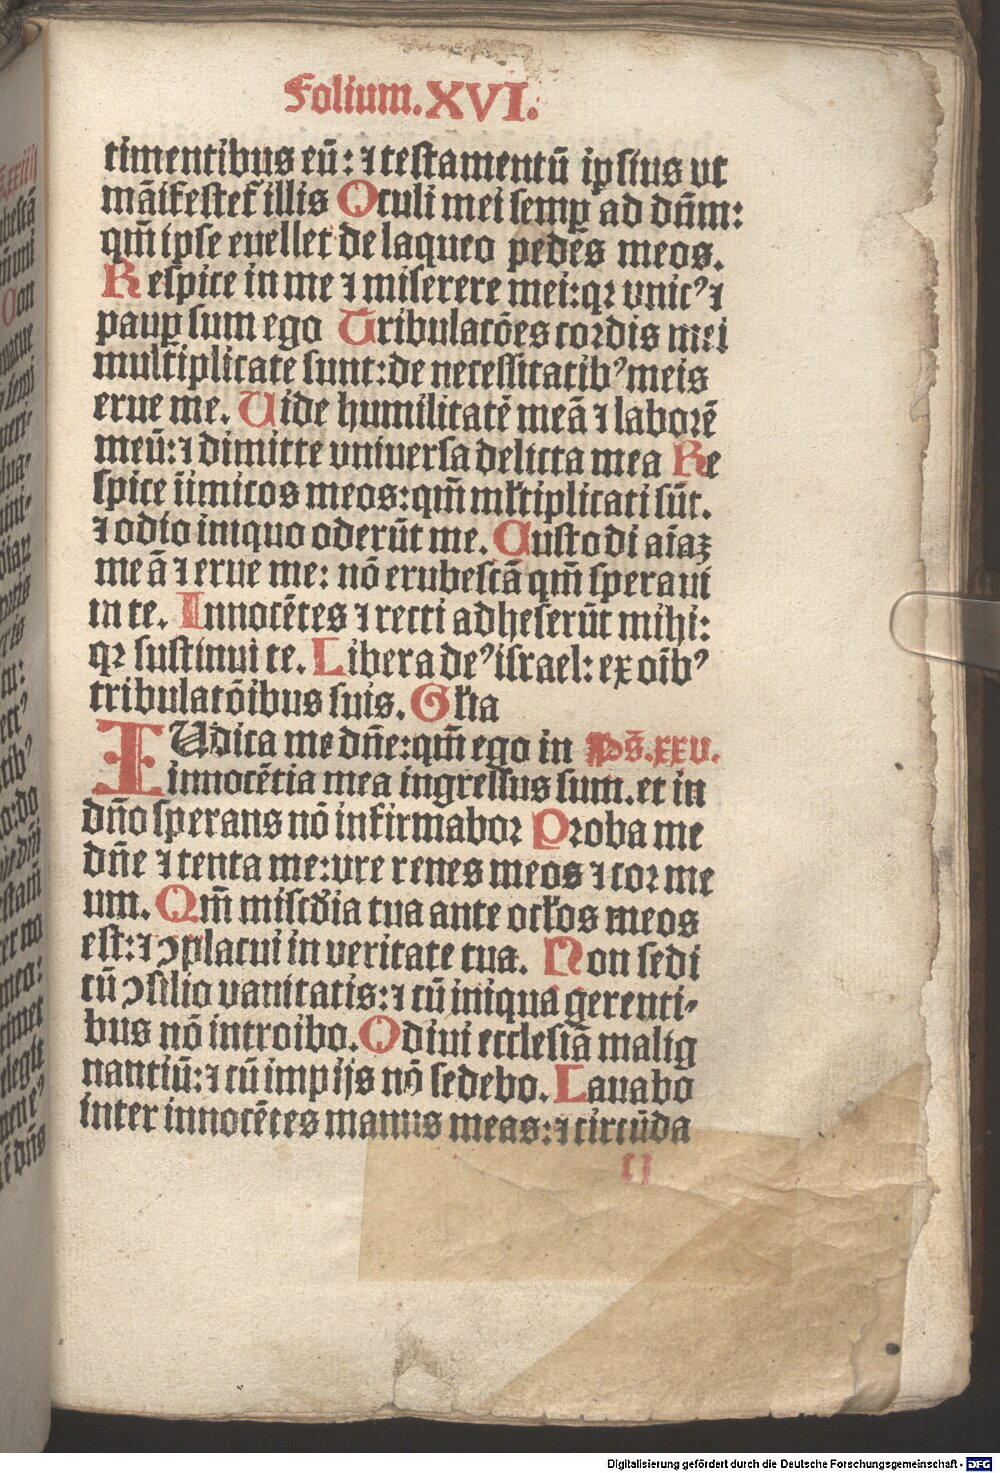 Folium. XVI.
timentibus eū: ⁊ testamentū ipsius vt
māifestet illis Oculi mei semꝑ ad dn̄m:
qm̄ ipse euellet de laqueo pedes meos.
Respice in me ⁊ miserere mei: qꝛ vnicꝰ ⁊
pauꝑ sum ego Tribulatōes cordis mei
multiplicate sunt: de necessitatibꝰ meis
erue me. Uide humilitatē meā ⁊ laborē
meū: ⁊ dimitte vniuersa delicta mea Re
spice iimicos meos: qm̄ mr̄tiplicati sūt.
⁊ odio iniquo oderūt me. Custodi aīaꝫ
meā ⁊ erue me: nō erubescā qm̄ speraui
in te. Innocētes ⁊ recti adheserūt mihi:
qꝛ sustinui te. Libera deꝰ israel: ex oībꝰ
tribulatōibus suis. Gl̄ia
IUdica me dn̄e: qm̄ ego in Ps̄. xxv.
innocētia mea ingressus sum. et in
dn̄o sperans nō infirmabor Proba me
dn̄e ⁊ tenta me: vre renes meos ⁊ cor me
um. Qm̄ misc̄dia tua ante ocl̄os meos
est: ⁊ ꝯplacui in veritate tua. Non sedi
cū ꝯsilio vanitatis: ⁊ cū iniqua gerenti-
bus nō introibo. Odiui ecclesiā malig
nantiū: ⁊ cū impijs nō sedebo. Lauabo
inter innocētes manus meas: ⁊ circūda
Digitalisierung gefördert durch die Deutsche Forschungsgemeinschaft - DFG